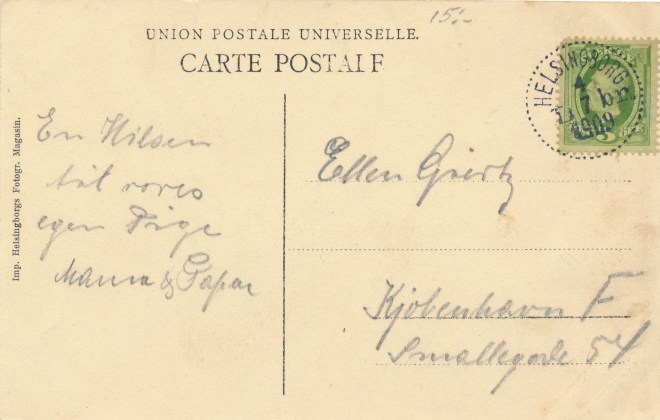 15.-
UNION POSTALE UNIVERSELLE.
CARTE POSTALE
HELSINGBORG
4 7
1909
Imp. Helsingborgs Fotogr. Magasin.
En Hilsen
til vores
egen Pige
Mama & Papa
Ellen
Kjøbenhavn F
Smallegade 54